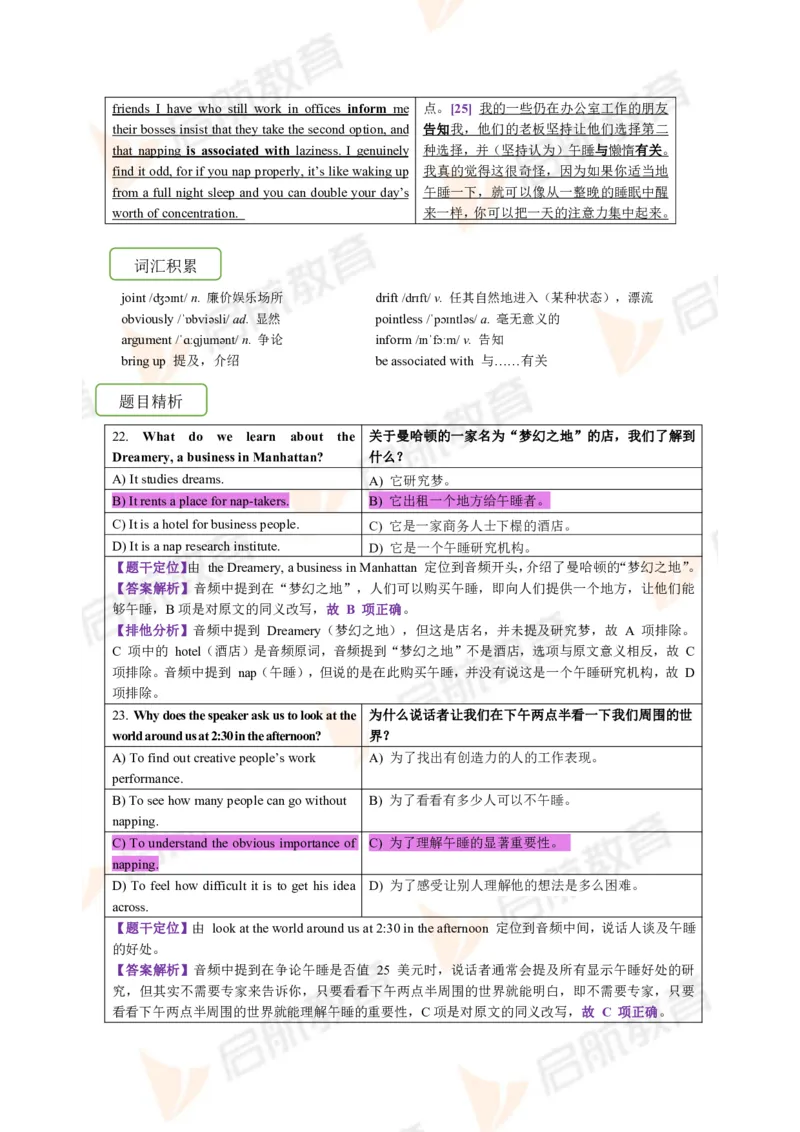 friends I have who still work in offices inform me
their bosses insist that they take the second option, and
that napping is associated with laziness. I genuinely
find it odd, for if you nap properly, it’s like waking up
from a full night sleep and you can double your day’s
worth of concentration.
点。[25] 我的一些仍在办公室工作的朋友
告知我，他们的老板坚持让他们选择第二
种选择，并（坚持认为）午睡与懒惰有关。
我真的觉得这很奇怪，因为如果你适当地
午睡一下，就可以像从一整晚的睡眠中醒
来一样，你可以把一天的注意力集中起来。
词汇积累
joint /ʤɔɪnt/ n. 廉价娱乐场所
drift /drɪft/ v. 任其自然地进入（某种状态），漂流
obviously /ˈɒbviəsli/ ad. 显然
pointless /ˈpɔɪntləs/ a. 毫无意义的
argument /ˈɑːɡjumənt/ n. 争论
inform /ɪnˈfɔːm/ v. 告知
bring up 提及，介绍
be associated with 与……有关
题目精析
22. What do we learn about the
Dreamery, a business in Manhattan?
关于曼哈顿的一家名为“梦幻之地”的店，我们了解到
什么？
A) It studies dreams.
A) 它研究梦。
B) It rents a place for nap-takers.
B) 它出租一个地方给午睡者。
C) It is a hotel for business people.
C) 它是一家商务人士下榻的酒店。
D) It is a nap research institute.
D) 它是一个午睡研究机构。
【题干定位】由 the Dreamery, a business in Manhattan 定位到音频开头，介绍了曼哈顿的“梦幻之地”。
【答案解析】音频中提到在“梦幻之地”，人们可以购买午睡，即向人们提供一个地方，让他们能
够午睡，B 项是对原文的同义改写，故 B 项正确。
【排他分析】音频中提到 Dreamery（梦幻之地），但这是店名，并未提及研究梦，故 A 项排除。
C 项中的 hotel（酒店）是音频原词，音频提到“梦幻之地”不是酒店，选项与原文意义相反，故 C
项排除。音频中提到 nap（午睡），但说的是在此购买午睡，并没有说这是一个午睡研究机构，故 D
项排除。
23. Why does the speaker ask us to look at the
world around us at 2:30 in the afternoon?
为什么说话者让我们在下午两点半看一下我们周围的世
界？
A) To find out creative people’s work
performance.
A) 为了找出有创造力的人的工作表现。
B) To see how many people can go without
napping.
B) 为了看看有多少人可以不午睡。
C) To understand the obvious importance of
napping.
C) 为了理解午睡的显著重要性。
D) To feel how difficult it is to get his idea
across.
D) 为了感受让别人理解他的想法是多么困难。
【题干定位】由 look at the world around us at 2:30 in the afternoon 定位到音频中间，说话人谈及午睡
的好处。
【答案解析】音频中提到在争论午睡是否值 25 美元时，说话者通常会提及所有显示午睡好处的研
究，但其实不需要专家来告诉你，只要看看下午两点半周围的世界就能明白，即不需要专家，只要
看看下午两点半周围的世界就能理解午睡的重要性，C 项是对原文的同义改写，故 C 项正确。
启航教育